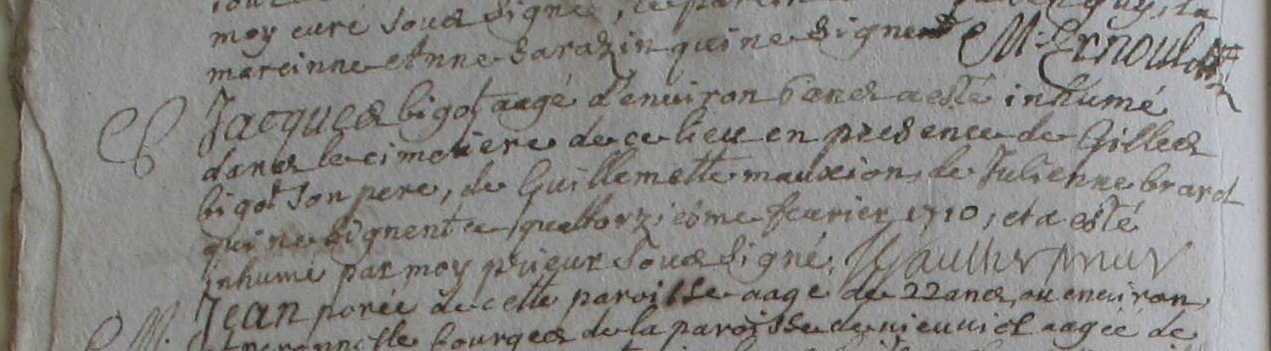 moy curé sous signé, le parein
mareinne Anne Sarazin qui ne signent M: Ernoul
S
Jacques bigot aagé d'enuiron 6 ans a esté inhumé
dans le cimetiere de ce lieu en presence de Gilles
bigot son pere, de Guillemette mauxion, de Julienne brard
qui ne signent ce quattorziesme feurier 1710, et a esté
inhumé par moy prieur sous signé. Gaultier prieur
M. Jean porée de cette paroisse aagé de 22 ans, ou enuiron,
bourges de la paroisse de vieuviel aagée de